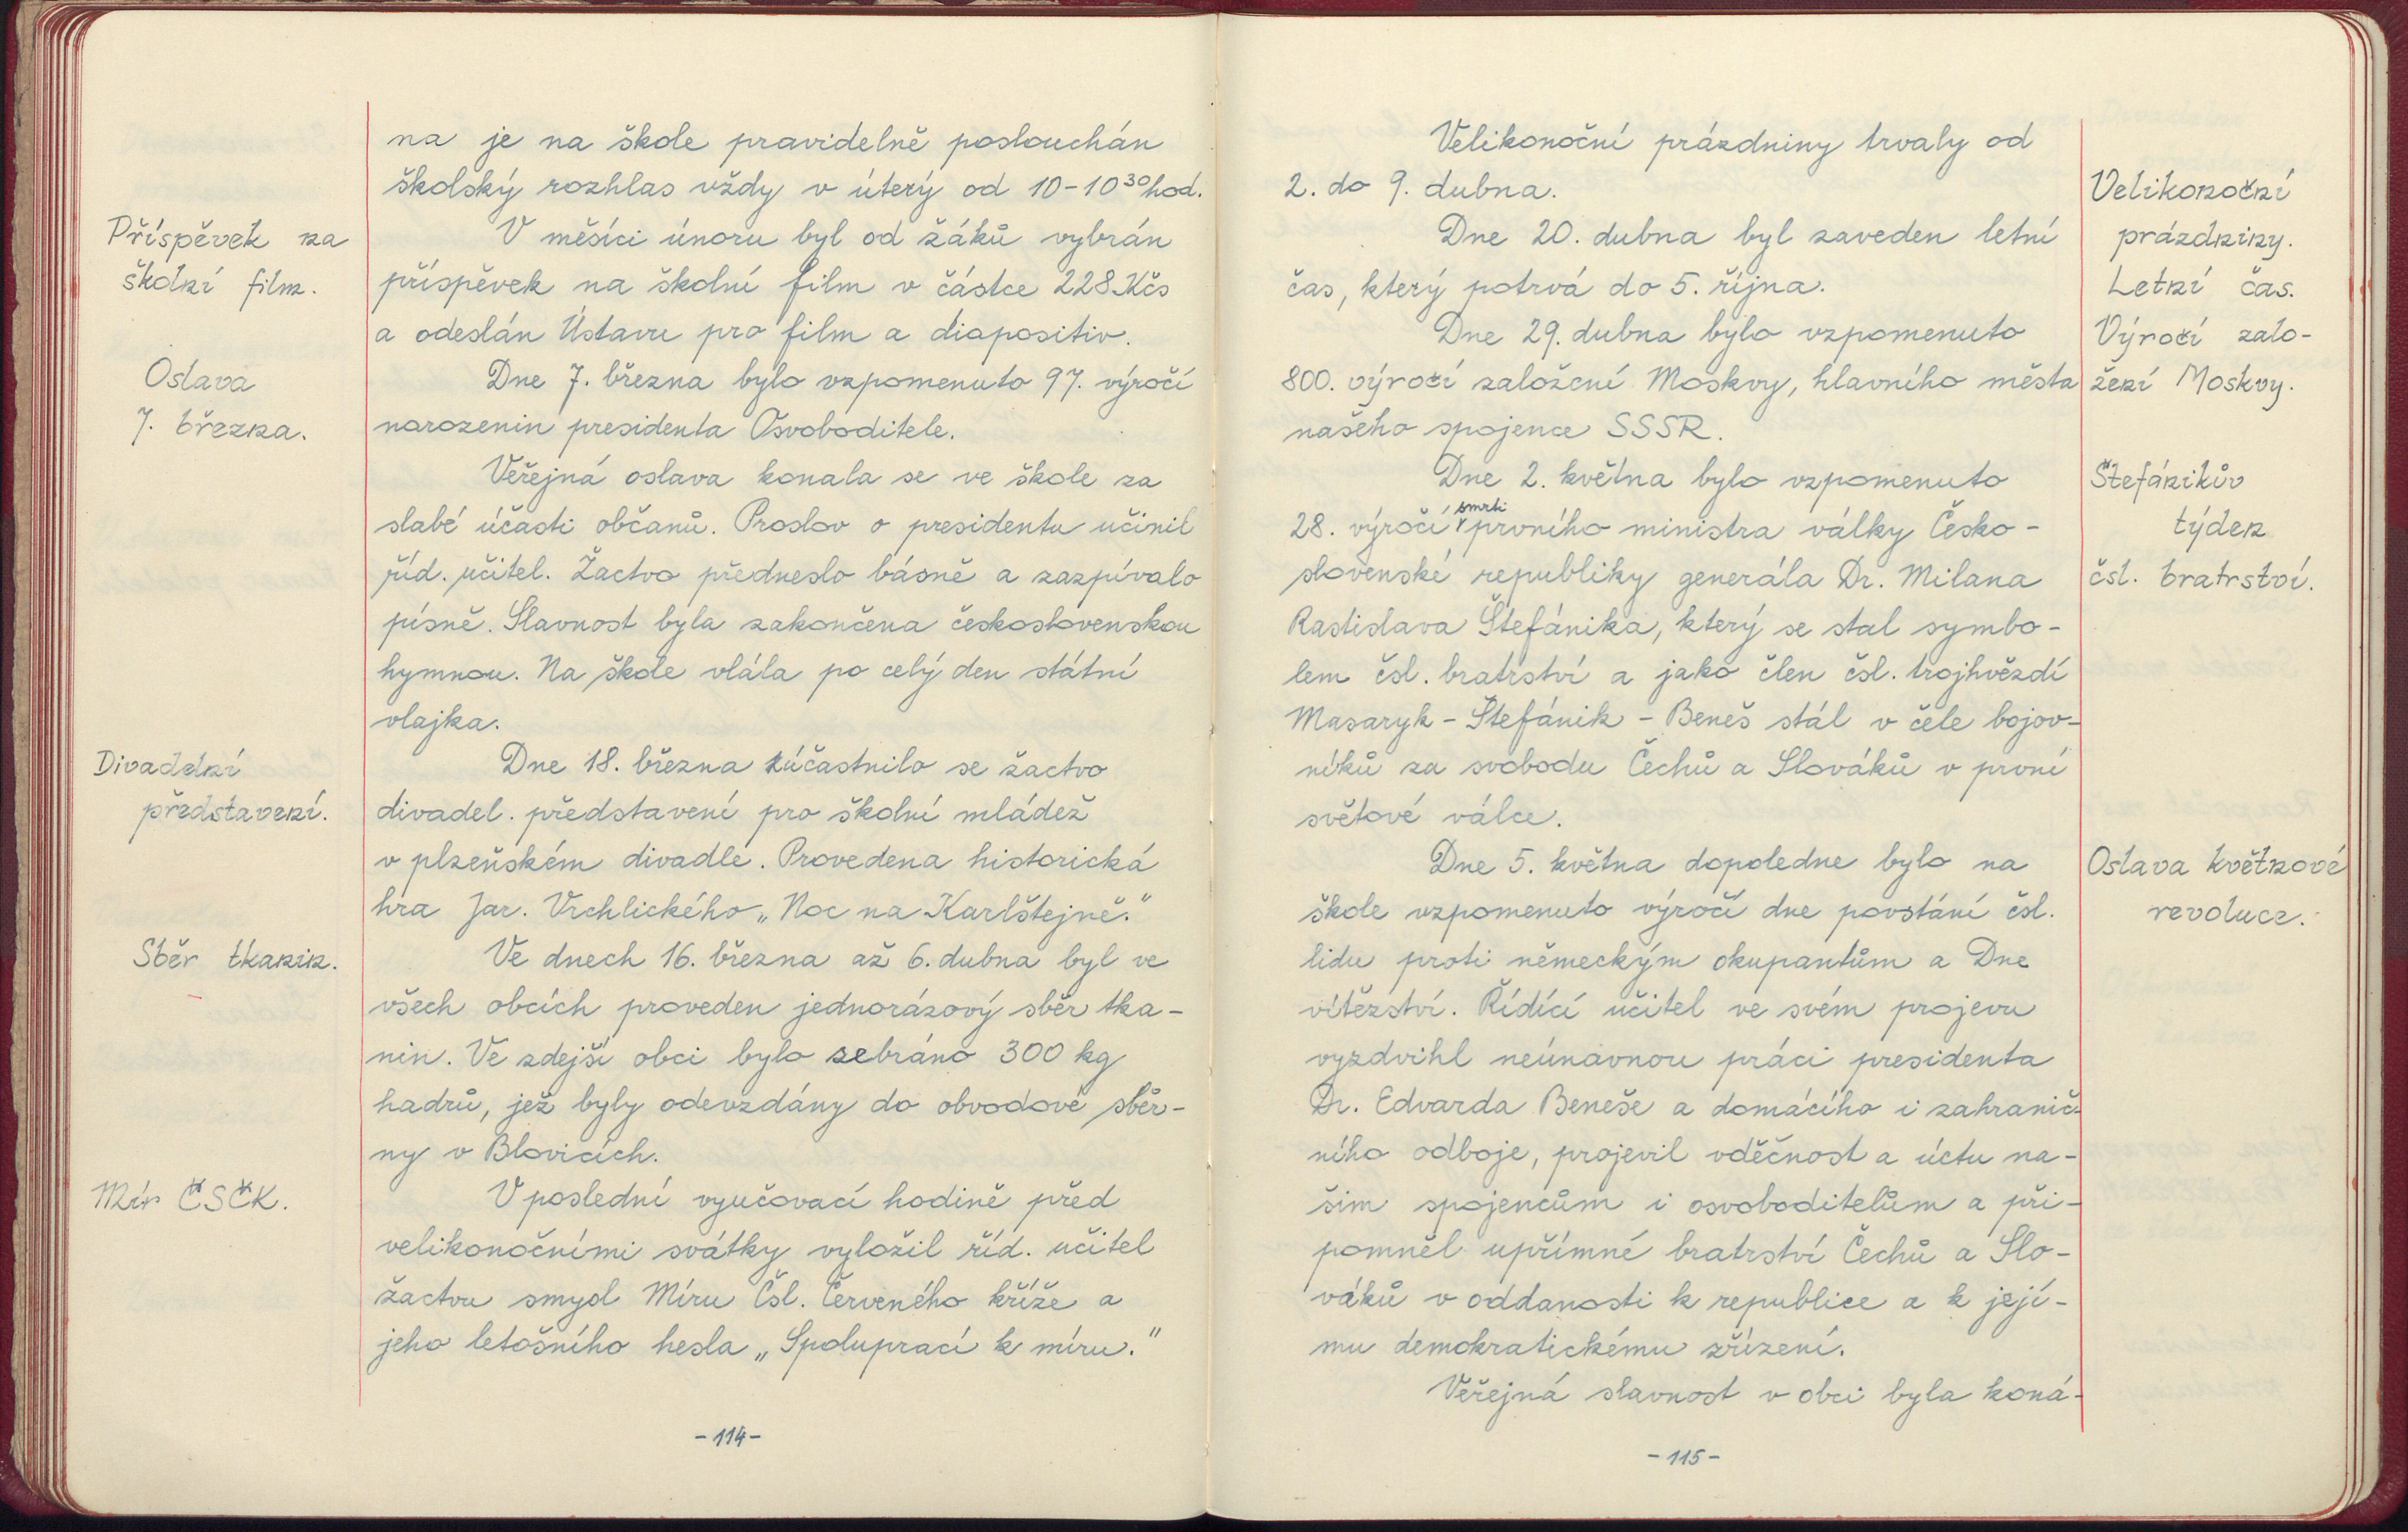 na je na škole pravidelně poslouchán
školský rozhlas vždy v úterý od 10-10³⁰ hod.
Příspěvek na
školní film.
V měsíci únoru byl od žáků vybrán
příspěvek na školní film v částce 228 Kčs
a odeslán Ústavu pro film a diapositiv.
Oslava
7. března.
Dne 7. března bylo vzpomenuto 97. výročí
narozenin presidenta Osvoboditele.
Veřejná oslava konala se ve škole za
slabé účasti občanů. Proslov o presidentu učinil
říd. učitel. Žactvo předneslo básně a zazpívalo
písně. Slavnost byla zakončena československou
hymnou. Na škole vlála po celý den státní
vlajka.
Divadelní
představení.
Dne 18. března zúčastnilo se žactvo
divadel. představení pro školní mládež
v plzeňském divadle. Provedena historická
hra Jar. Vrchlického „Noc na Karlštejně."
Sběr tkanin.
Ve dnech 16. března až 6. dubna byl ve
všech obcích proveden jednorázový sběr tka-
nin. Ve zdejší obci bylo sebráno 300 kg
hadrů, jež byly odevzdány do obvodové sběr-
ny v Blovicích.
Mír ČSČK.
V poslední vyučovací hodině před
velikonočními svátky vyložil říd. učitel
žactvu smysl Míru Čsl. Červeného kříže a
jeho letošního hesla „Spoluprací k míru."
-114-
Velikonoční prázdniny trvaly od
2. do 9. dubna.
Velikonoční
prázdniny.
Dne 20. dubna byl zaveden letní
čas, který potrvá do 5. října.
Letní čas.
Dne 29. dubna bylo vzpomenuto
800. výročí založení Moskvy, hlavního města
našeho spojence SSSR.
Výročí zalo-
žení Moskvy.
Dne 2. května bylo vzpomenuto
28. výročí smrti prvního ministra války Česko-
slovenské republiky generála Dr. Milana
Rastislava Štefánika, který se stal symbo-
lem čsl. bratrství a jako člen čsl. trojhvězdí
Masaryk - Štefánik - Beneš stál v čele bojov-
níků za svobodu Čechů a Slováků v první
světové válce.
Štefánikův
týden
čsl. bratrství.
Dne 5. května dopoledne bylo na
škole vzpomenuto výročí dne povstání čsl.
lidu proti německým okupantům a Dne
vítězství. Řídící učitel ve svém projevu
vyzdvihl neúnavnou práci presidenta
Dr. Edvarda Beneše a domácího i zahranič-
ního odboje, projevil vděčnost a úctu na-
šim spojencům i osvoboditelům a při-
pomněl upřímné bratrství Čechů a Slo-
váků v oddanosti k republice a k její-
mu demokratickému zřízení.
Oslava květnové
revoluce.
Veřejná slavnost v obci byla koná-
-115-